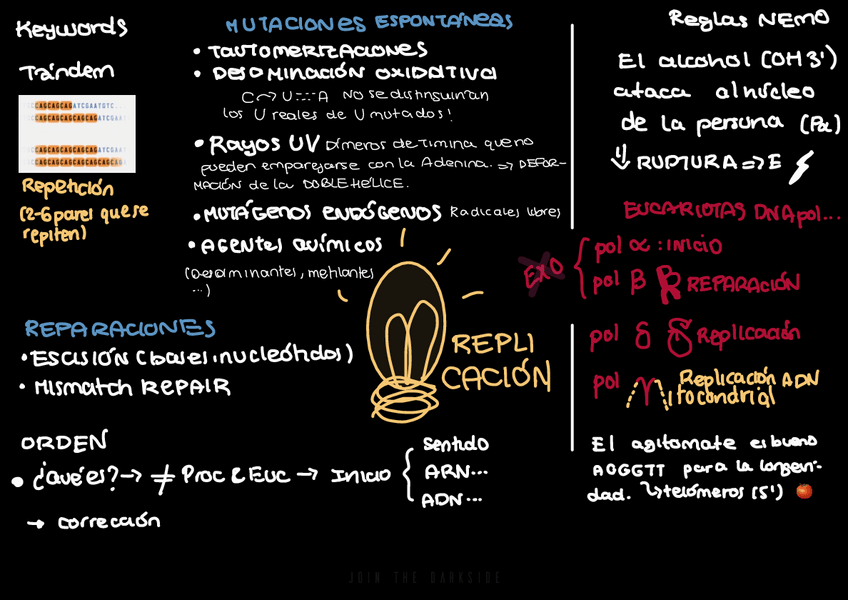 Keywords
Tándem
CAGCAGCAGATCGAATGTC
CAGCAGCAGCAGATCGAA
CAGCAGCAGCAGATCGAA
CAGCAGCAGCAGCAGCAG
Repetición
(2-6 pares que se
repiten)
MUTACIONES ESPONTÁNEAS
• TAUTOMERIZACIONES
• DESAMINACIÓN OXIDATIVA
C → U═══A No se distinguirían
los U reales de U mutados!
• Rayos UV Dímeros de Timina que no
pueden emparejarse con la Adenina. => DEFOR-
MACIÓN de la DOBLE HÉLICE.
• MUTÁGENOS ENDÓGENOS Radicales libres
• AGENTES QUÍMICOS
(Desaminantes, metilantes
...)
REPARACIONES
• ESCISIÓN (bases, nucleótidos)
• Mismatch REPAIR
REPLI
CACIÓN
ORDEN
• ¿Qué es? → ≠ Proc & Euc → Inicio { Sentido
ARN...
ADN...
→ corrección
Reglas NEMO
El alcohol (OH 3')
ataca al núcleo
de la persona (Pα)
⇓ RUPTURA => E
EUCARIOTAS DNA pol...
EXO { pol α : INICIO
pol β R REPARACIÓN
pol δ δ Replicación
pol γ Replicación ADN
mitocondrial
El agitomate es bueno
AGGGTT para la longevi-
dad. ↳ telómeros (5') 🍅
JOIN THE DARKSIDE